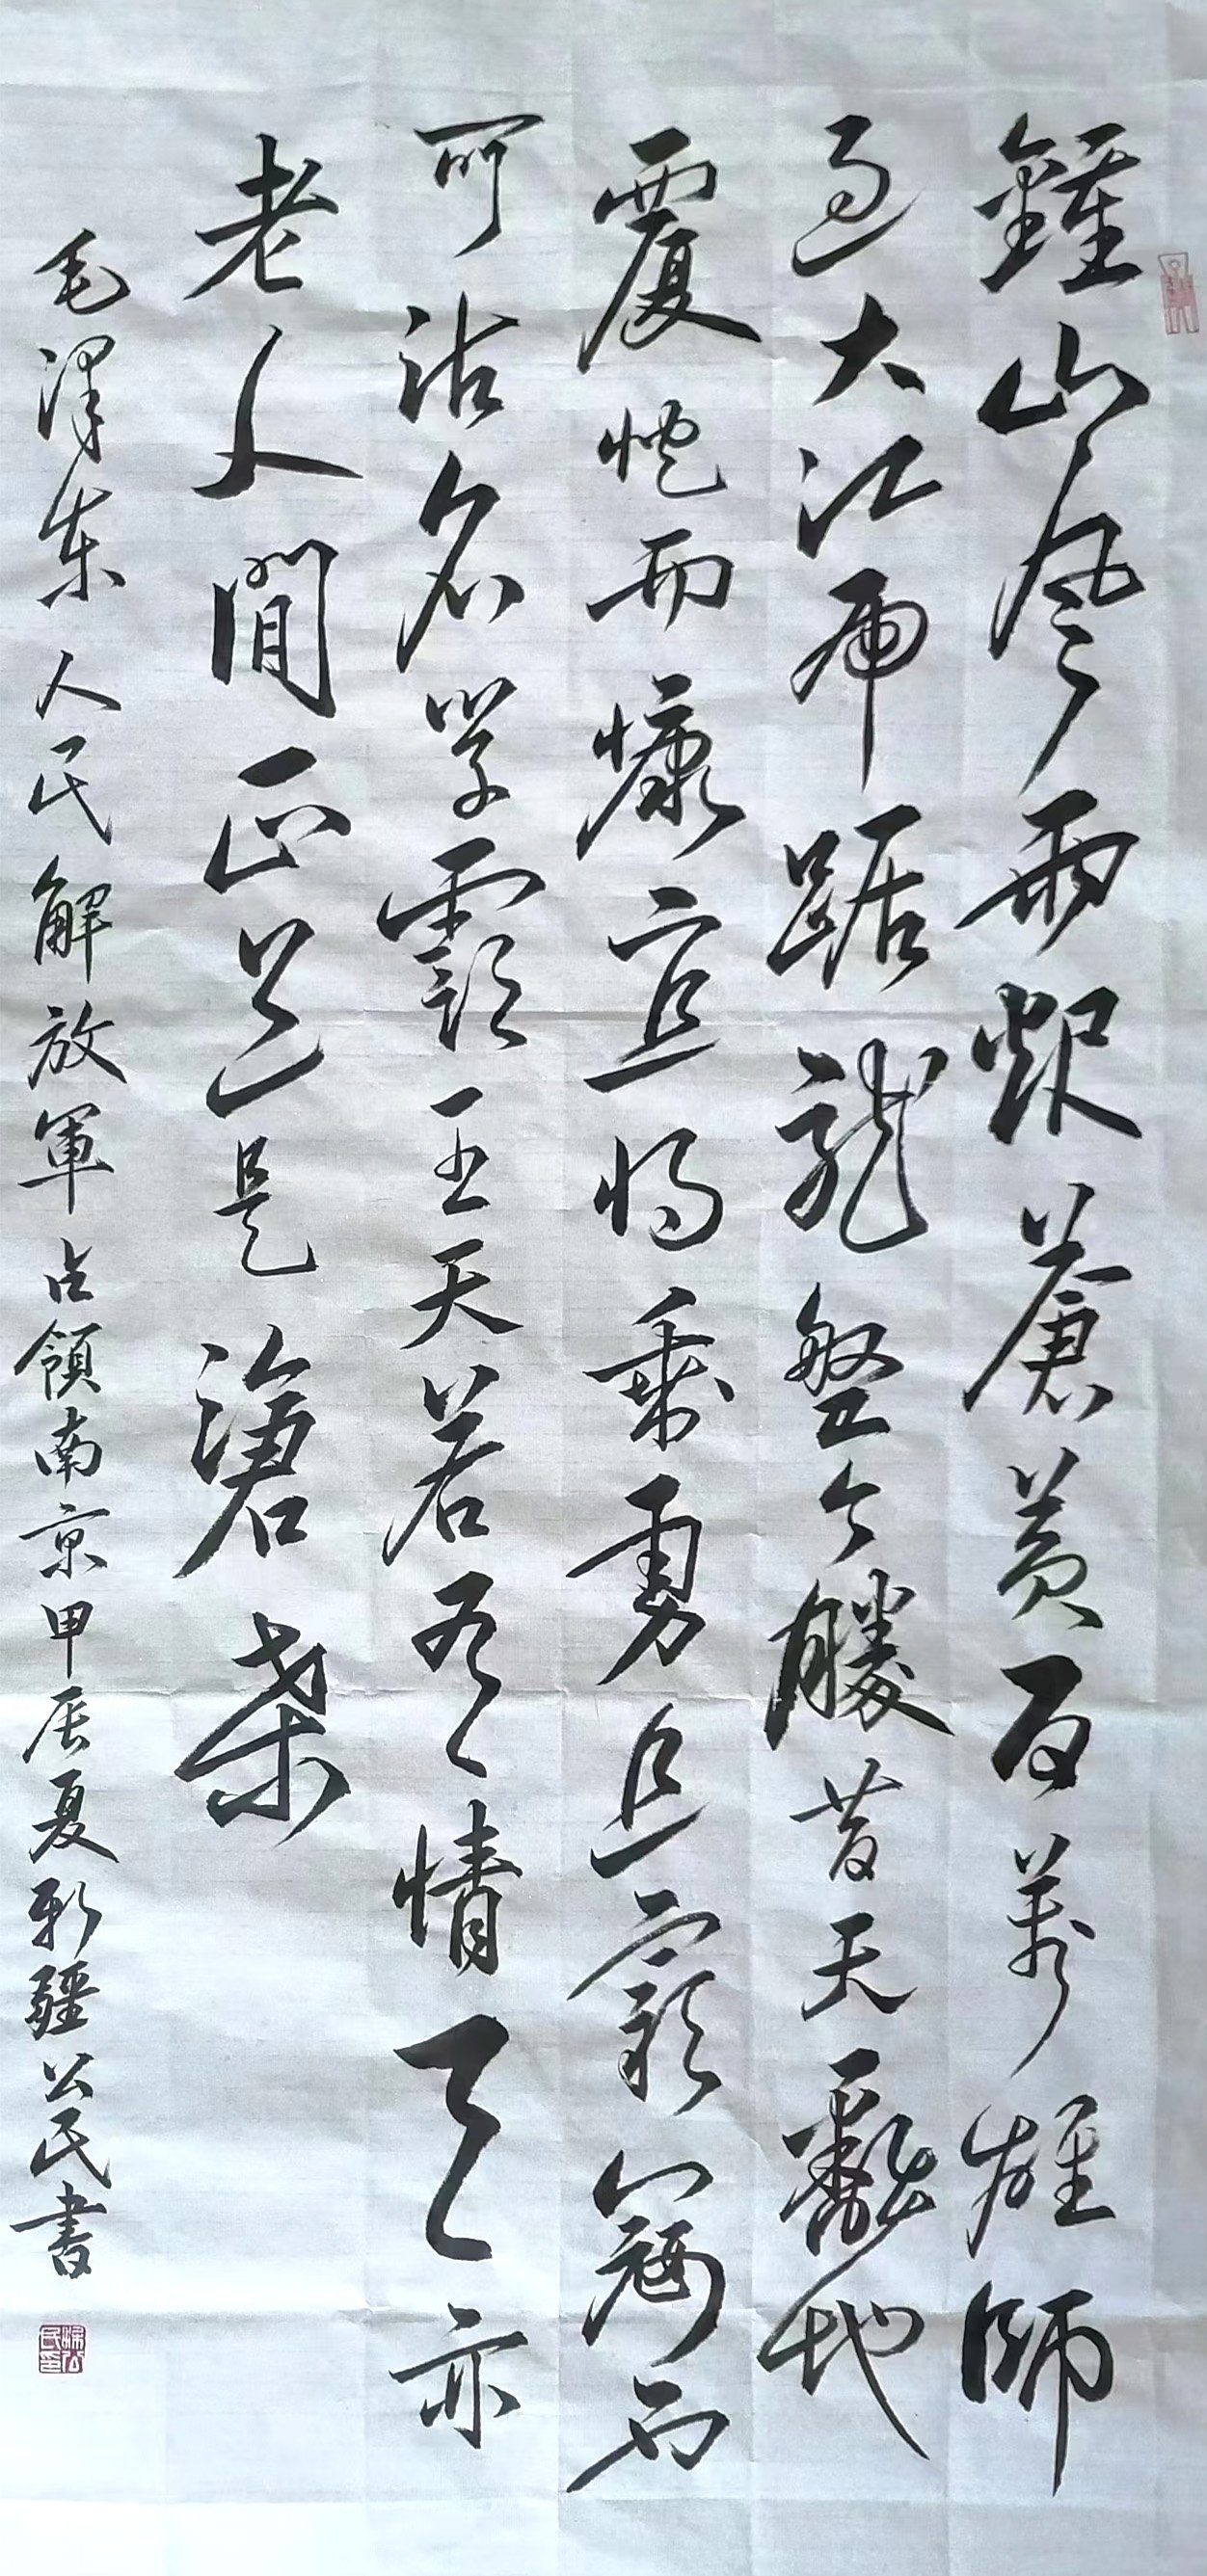 鍾山風雨起蒼黃百萬雄師
過大江虎踞龍盤今勝昔天翻地
覆慨而慷宜將剩勇追窮寇不
可沽名學霸王天若有情天亦
老人間正道是滄桑
毛澤東人民解放軍占領南京甲辰夏新疆公民書